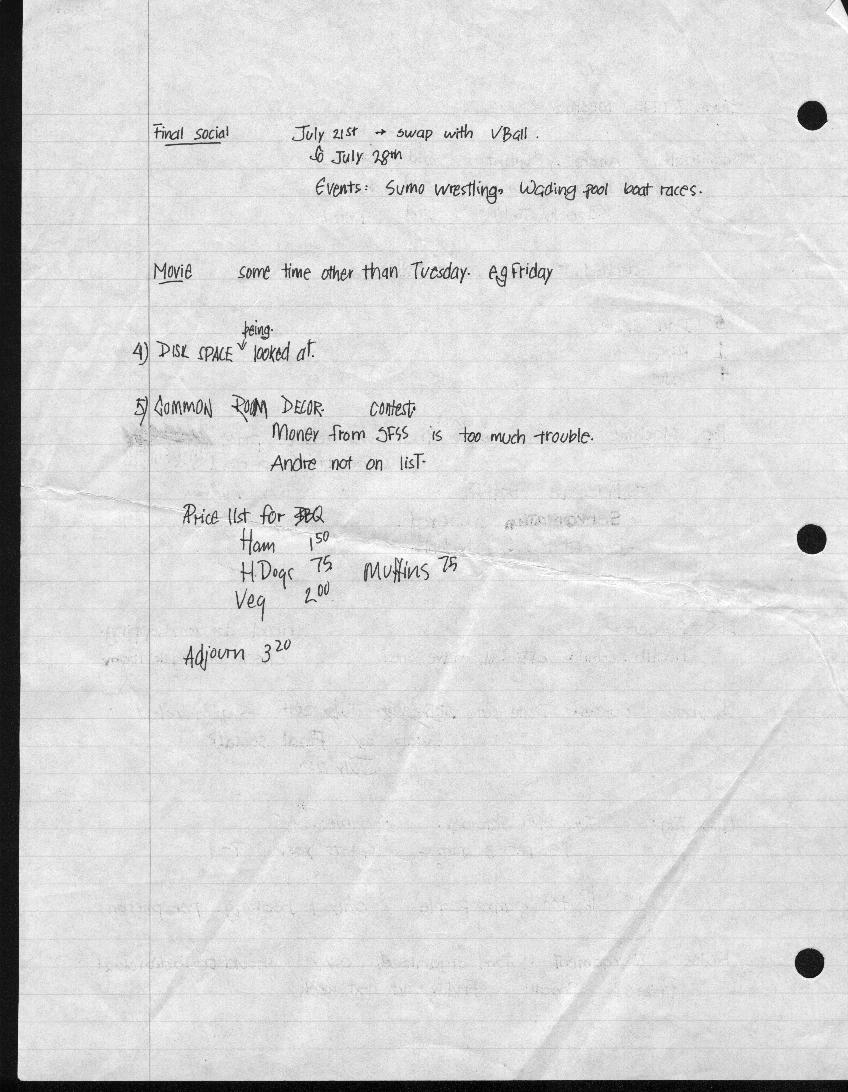 Final social July 21st → swap with VBall.
July 28th
Events: Sumo wrestling, Wading pool boat races.
Movie some time other than Tuesday. eg Friday
being.
4) DISK SPACE looked at.
5) COMMON ROOM DECOR. contest.
Money from SFSS is too much trouble.
Andre not on list.
Price list for BBQ
Ham 1 50
H.Dogs 75 Muffins 75
Veg 2 00
Adjourn 3 20